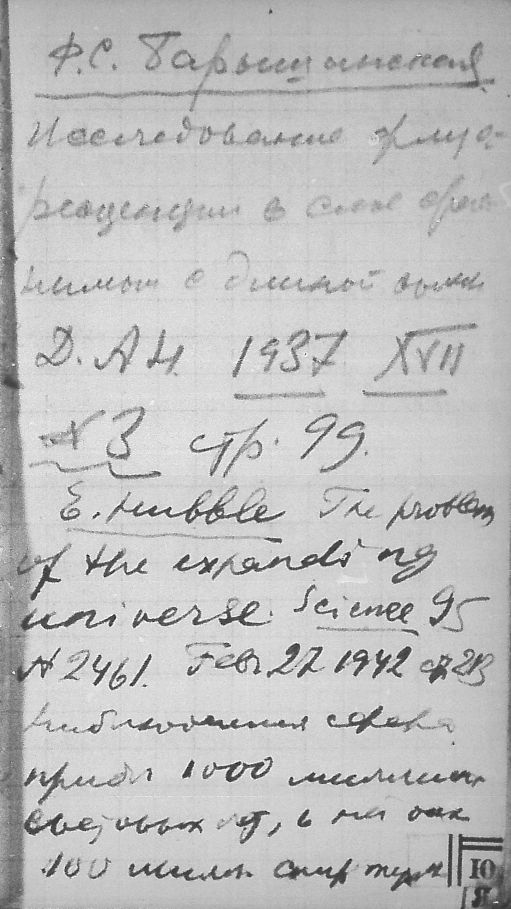 Ф.С. Барышанская
Исследование флуо-
ресценции в слое срав-
нимом с длиной волны
Д.А.Н. 1937 XVII
№ 3 стр. 99.
E. Hubble The problem
of the expanding
universe. Science 95
N 2461. Febr 27 1942 стр 213
сфера
прибл 1000 миллион
световых лет, в ней
100 милл. спир
Ю
Я